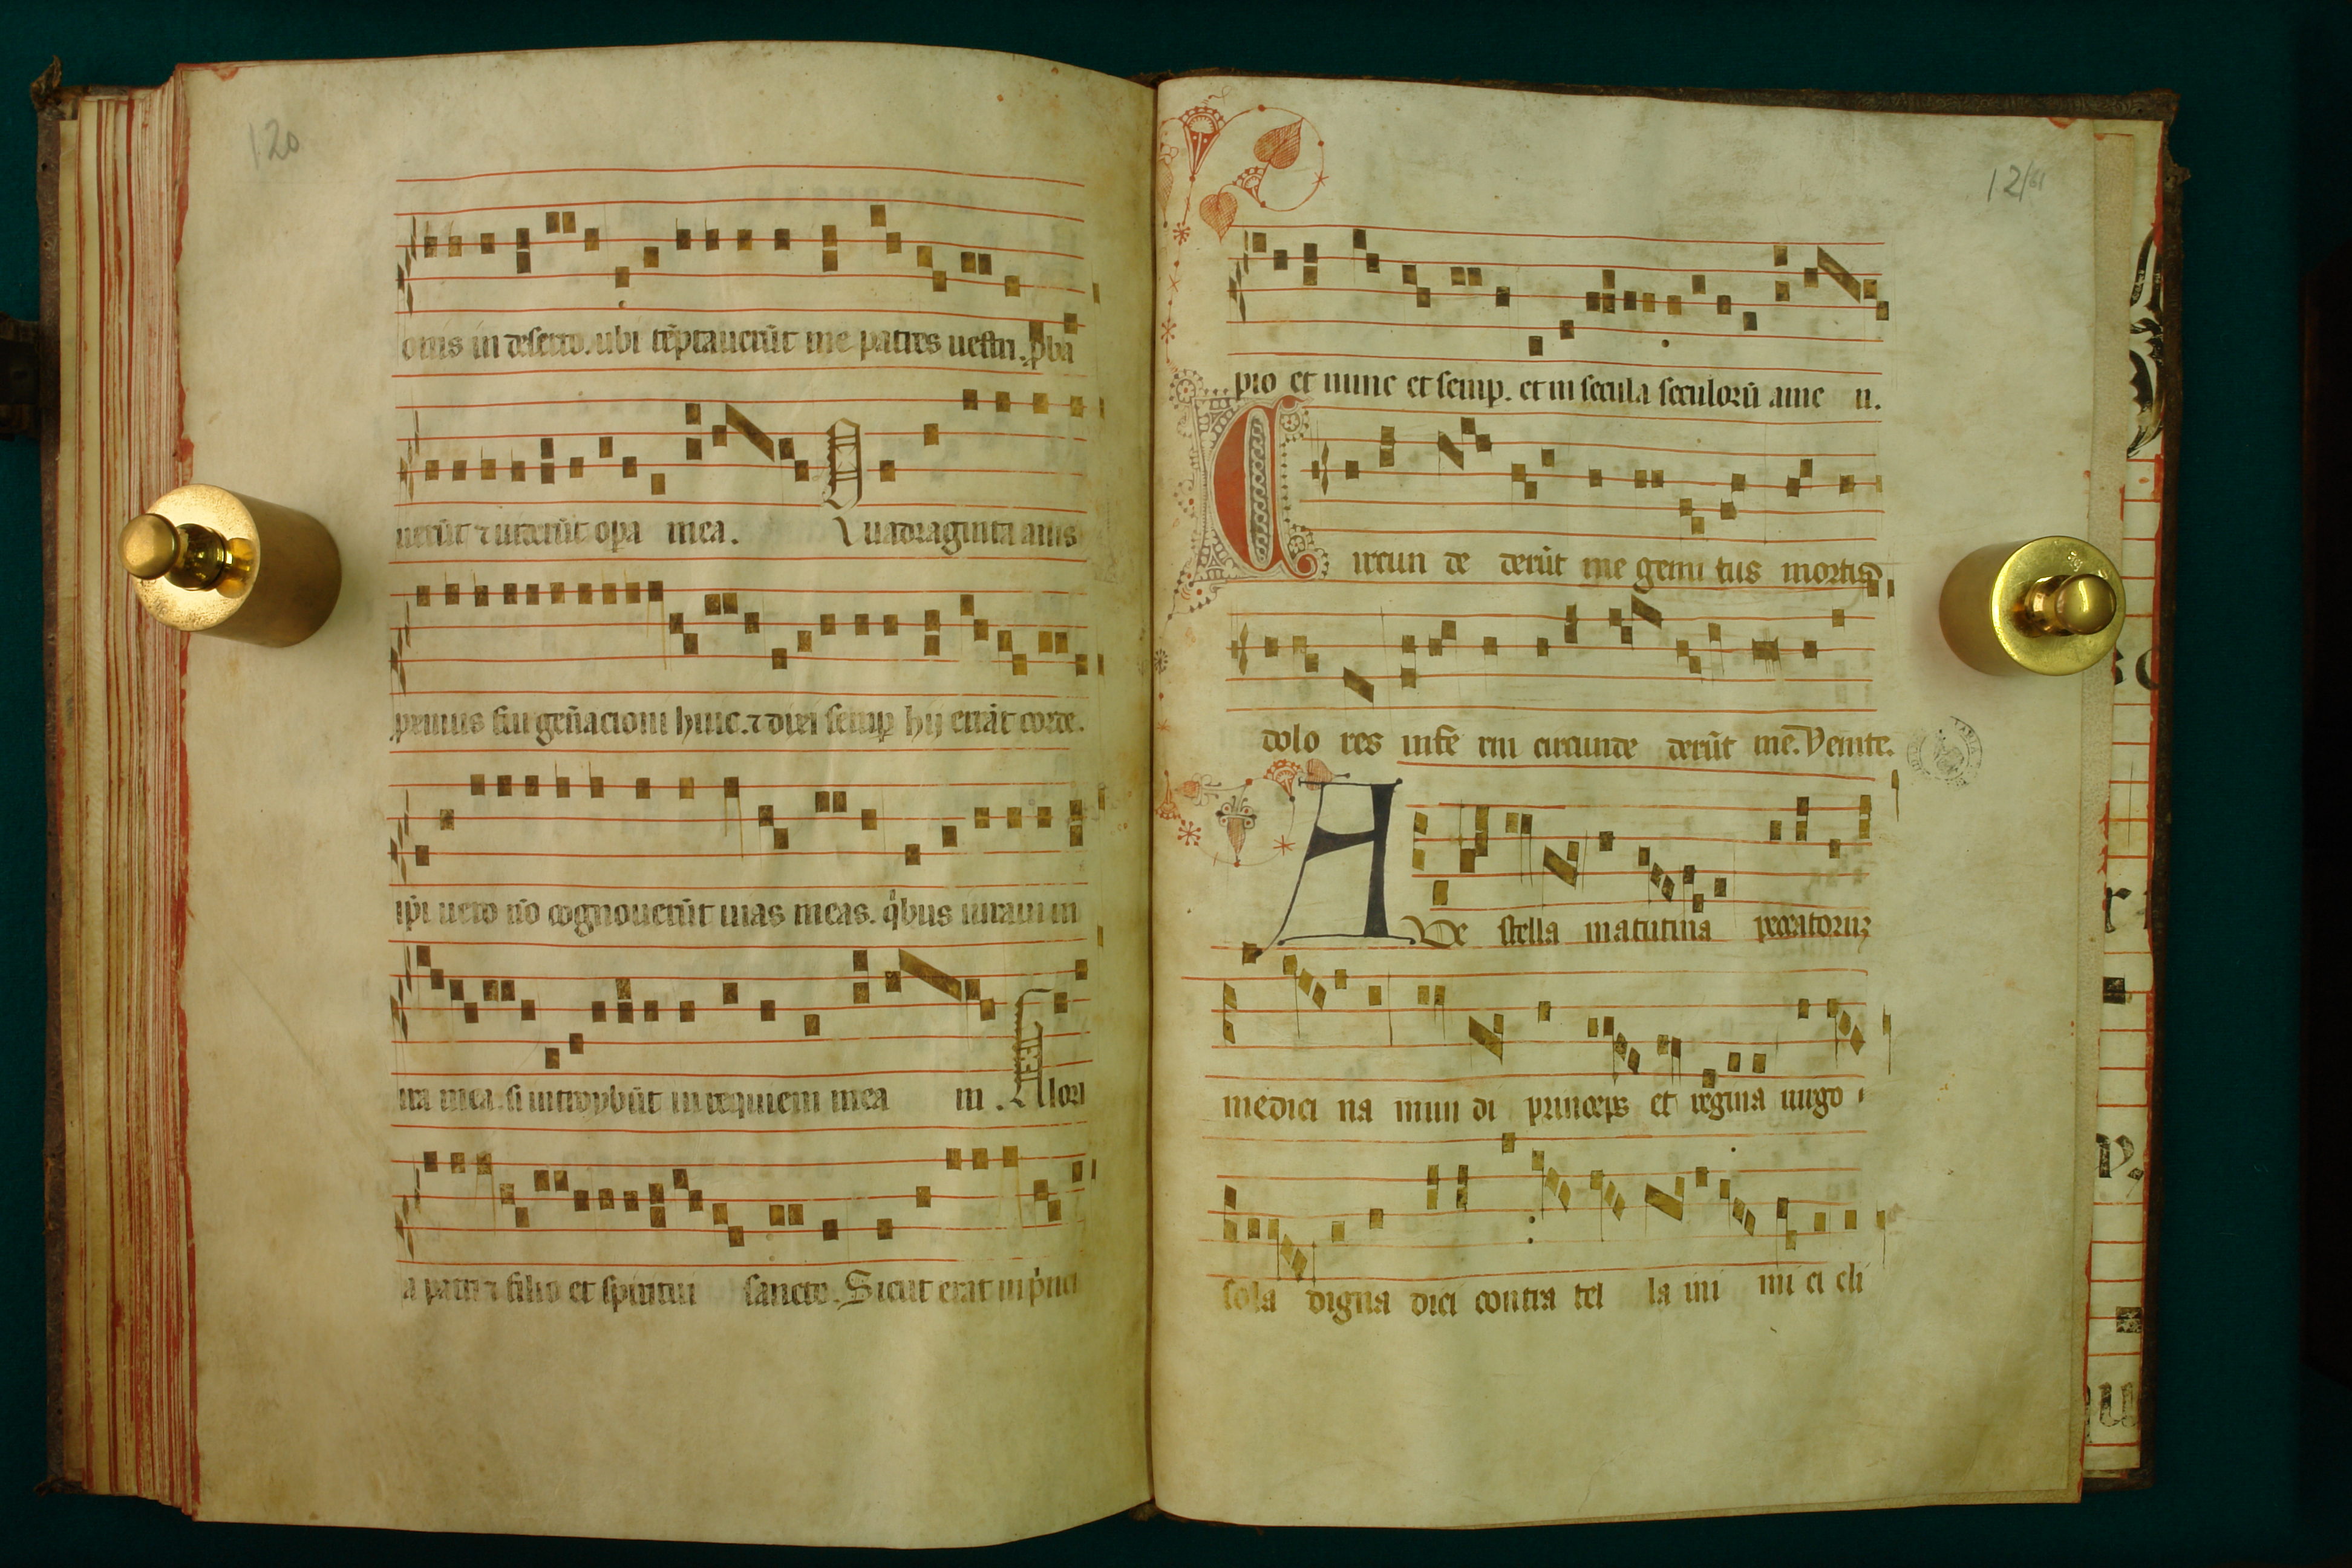 120
onis in deserto. ubi tẽptauerũt me patres uestri. ꝓba
uerũt ⁊ uiderũt oꝑa mea. Quadraginta annis
proximus fui geñacioni huic. ⁊ dixi semꝑ hij errãt corde.
ipi uero nõ cognouerũt uias meas. qͥbus iuraui in
ira mea. si introybũt in requiem mea m. Glori
a patri ⁊ filio et spiritui sancto. Sicut erat in pͥnci
121
pio et nunc et semp. et in secula seculorũ ame n.
Circun de derũt me gemi tus mortis
dolo res infe rni circunde derũt me. Venite.
AVe stella matutina peccatorum
medici na mun di princeps et regina uirgo
sola digna dici contra tel la ini mi ci cli